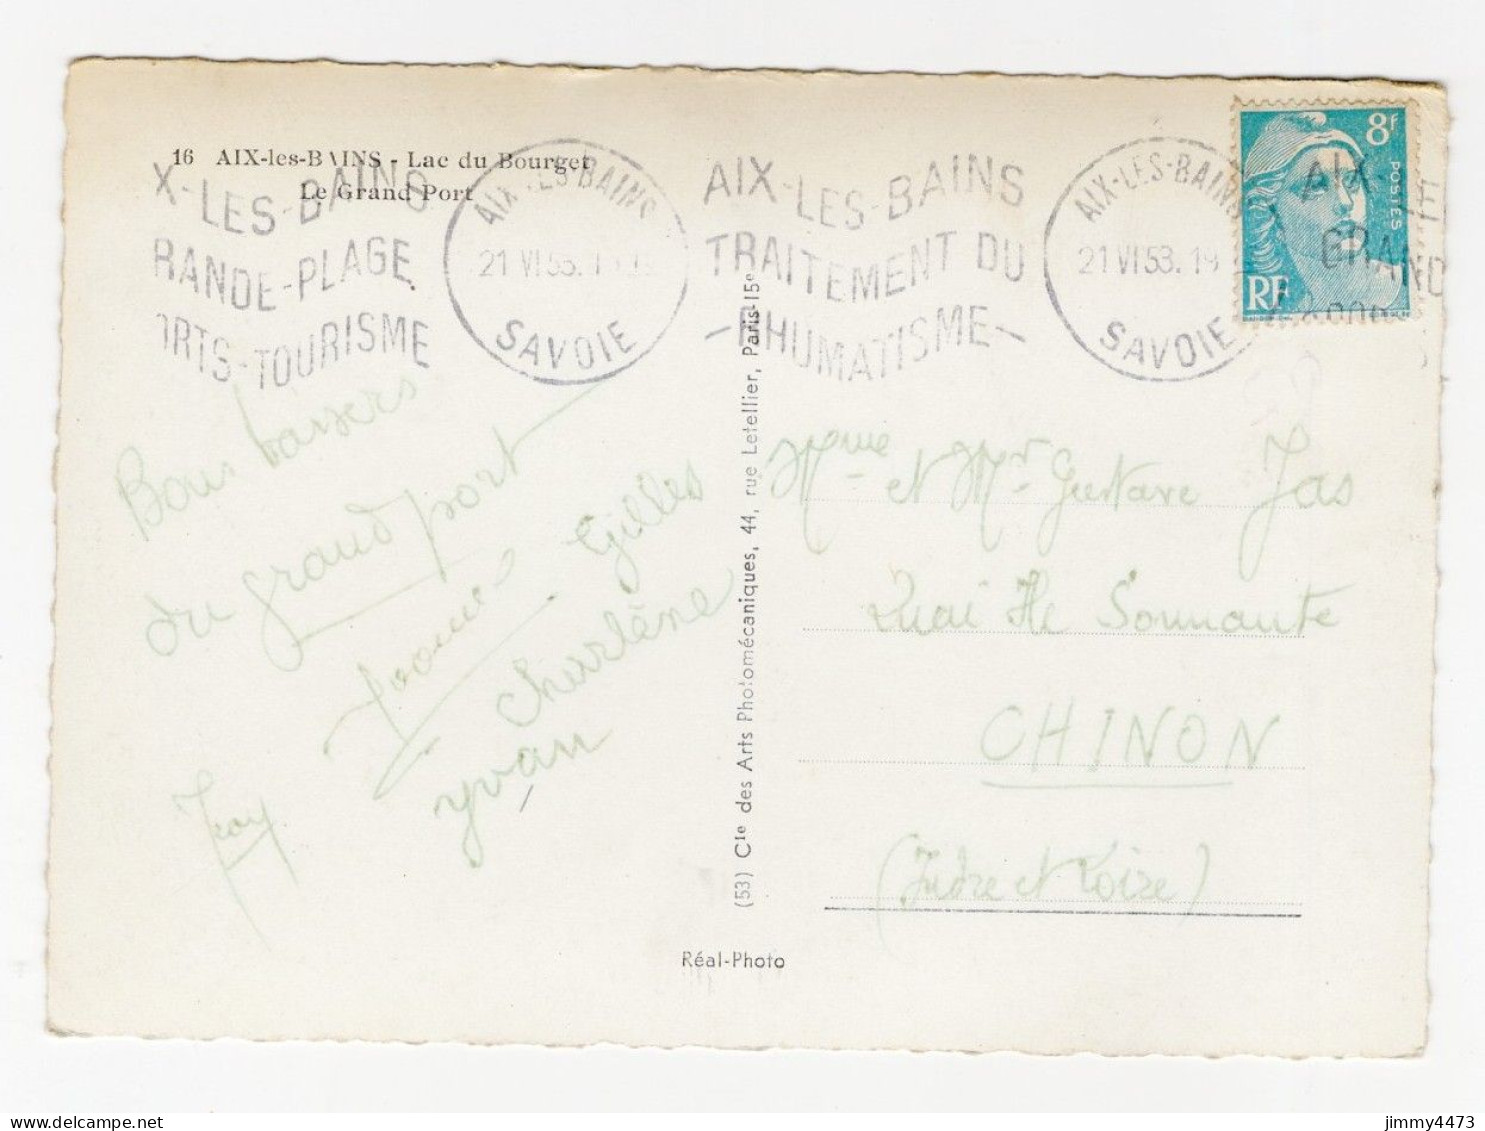 16 AIX-les-BAINS - Lac du Bourget
Le Grand Port
X-LES-BAINS
RANDE-PLAGE
ORTS-TOURISME
AIX-LES-BAINS
21 VI 53. 19
SAVOIE
AIX-LES-BAINS
TRAITEMENT DU
-RHUMATISME-
AIX-LES-BAINS
21 VI 53. 19
SAVOIE
8f
POSTES
RF
AIX-LE
GRAND
Bons baisers
du grand port
Gilles
Charlène
yvan
(53) Cie des Arts Photomécaniques, 44, rue Letellier, Paris-15e
Mme et Mr Gustave Jas
Quai Ile Sonnante
CHINON
(Indre et Loire)
Réal-Photo
jimmy4473